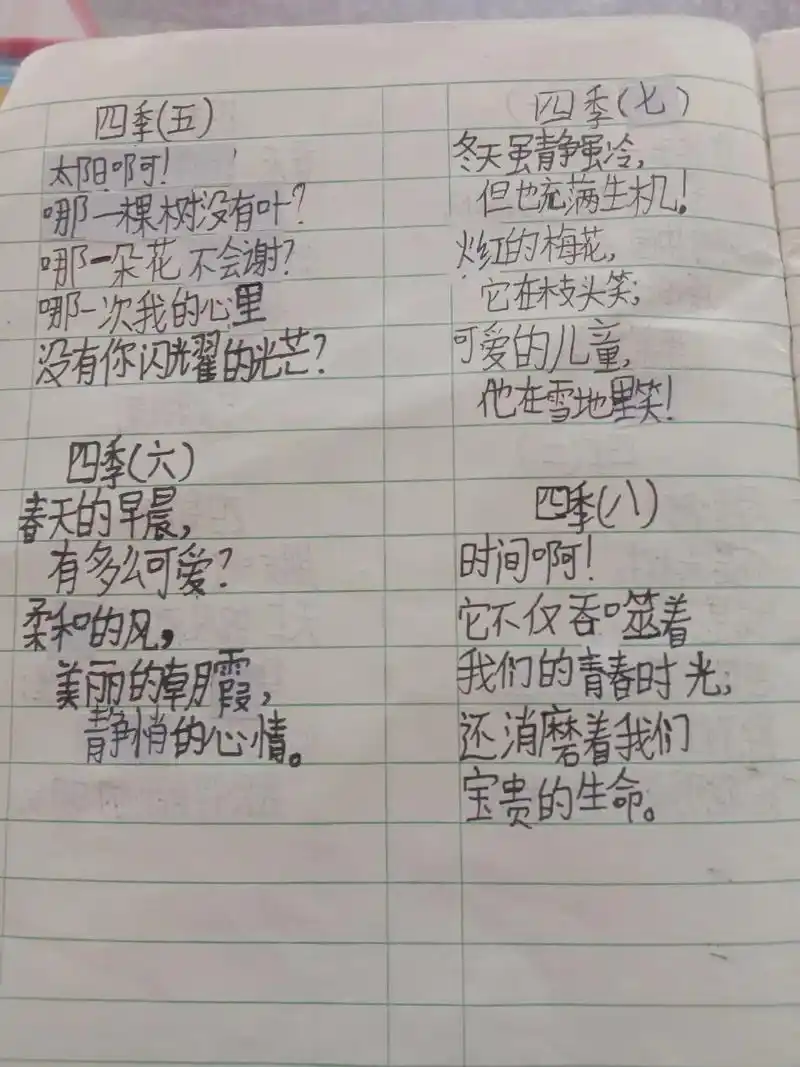 四季(五)
太阳啊!
哪一棵树没有叶?
哪一朵花不会谢?
哪一次我的心里
没有你闪光耀的光芒?
四季(六)
春天的早晨,
有多么可爱?
柔和的风,
美丽的朝霞,
静悄的心情。
四季(七)
冬天虽静虽冷,
但也充满生机!
火红的梅花,
它在枝头笑;
可爱的儿童,
他在雪地里笑!
四季(八)
时间啊!
它不仅吞噬着
我们的青春时光;
还消磨着我们
宝贵的生命。